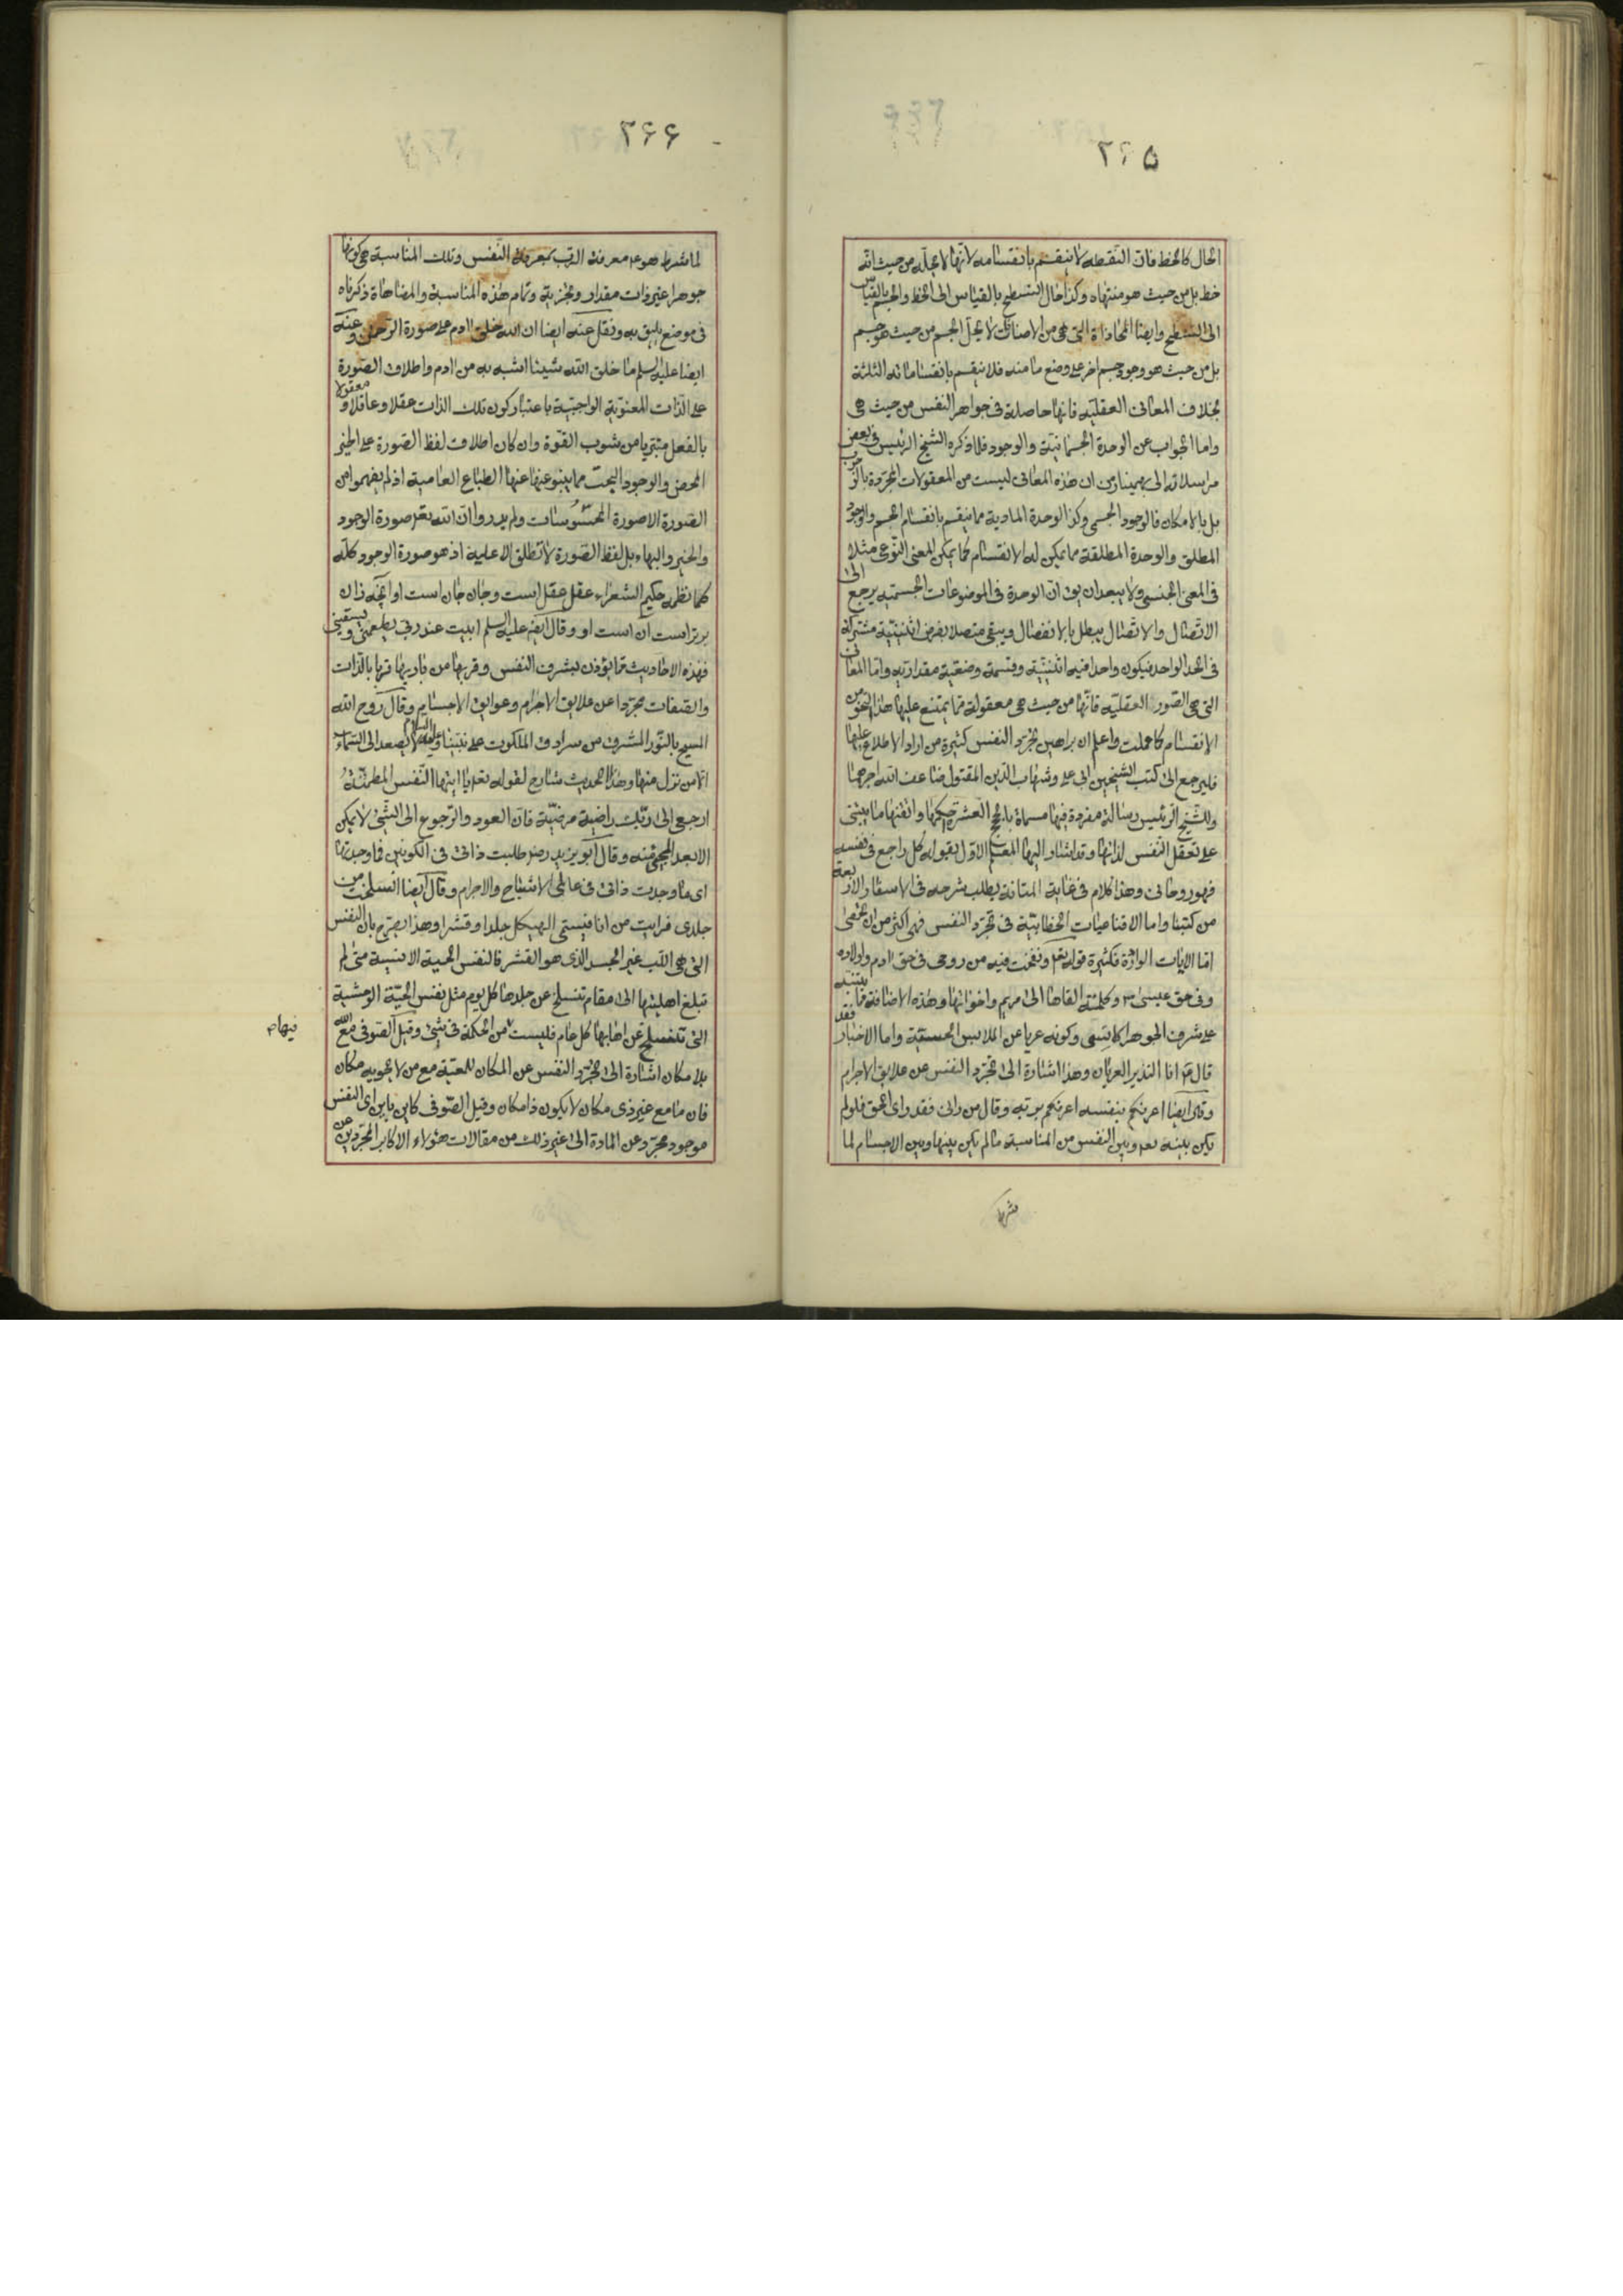 ۲۶۵
الحال كالخط فان النقطه لا ينقسم بانقسامه لانها لا تحله من حيث انه
خط بل من حيث هو منتهاه وكذا حال السطح بالقياس الى الخط والجسم بالقياس
الى السطح وايضا المحاذاة التي هي من الاضافات لا تحل الجسم من حيث هو جسم
بل من حيث هو وجود جسم اخر على وضع ما منه فلا ينقسم بانقساماته الثلثة
بخلاف المعانى العقليه فانها حاصلة فى جواهر النفس من حيث هى
واما الجواب عن الوحدة الجسمانية والوجود فلما ذكره الشيخ الرئيس فى بعض
مراسلاته الى بهمنيار من ان هذه المعانى ليست من المعقولات المجردة بالوجوب
بل بالامكان فالوجود الجسمى وكذا الوحدة المادية مما ينقسم بانقسام الجسم والوجود
المطلق والوحدة المطلقة مما يمكن له الانقسام كما يمكن للمعنى النوعى مثلا
فى المعنى الجنسى ولا يبعد ان يق ان الوحدة فى الموضوعات الجسمية يرجع الى
الاتصال والاتصال يبطل بالانفصال ويبقى متصلا بفرض اثنينية مشتركة
فى الحد الواحد فيكون واحدا فيه اثنينية وقسمة وضعية مقدارية واما المعانى
التى هى الصور العقليه فانها من حيث هى معقولة مما يمتنع عليها هذا النحو من
الانقسام كما عملت واعلم ان براهين تجرد النفس كثيرة من اراد الاطلاع عليها
فليرجع الى كتب الشيخين ابى على وشهاب الدين المقتول ضاعف الله اجرهما
وللشيخ الرئيس رسالة مفردة فيها مسماة بالحجج العشرة احكمها واتقنها ما يبتنى
على تعقل النفس لذاتها وقد اشار اليها المعلم الاول بقوله كل راجع فى نفسه
فهو روحانى وهذا كلام فى غاية المتانة يطلب شرحه فى الاسفار الاربعة
من كتبنا واما الاقناعيات الخطابية فى تجرد النفس فهى اكثر من ان تحصى
اما الايات الواردة فكثيرة قوله تعالى ونفخت فيه من روحى فى حق ادم واولاده
وفى حق عيسى ع وكلمته القاها الى مريم واخواتها وهذه الاضافة تنبه
على شرف الجوهر الانسى وكونه عريا عن الملابس الحسية واما الاخبار فقد
قال ص انا النذير العريان وهذا اشارة الى تجرد النفس عن علايق الاجرام
وقال ايضا اعرفكم بنفسه اعرفكم بربه وقال من رانى فقد راى الحق فلو لم
يكن بينه تعالى وبين النفس من المناسبة ما لم يكن بينها وبين الاجسام لما
شرط
۲۶۶
لما شرط هو ع معرفة الرب بمعرفة النفس وتلك المناسبة هى كونها
جوهرا غير ذات مقدار وتجزية وتمام هذه المناسبة والمضاهاة ذكرناه
فى موضع يليق به ونقل عنه ايضا ان الله خلق ادم على صورة الرحمن وعنه
ايضا عليه السلم ما خلق الله شيئا اشبه به من ادم واطلاق الصورة
على الذات المعنوية الواجبية باعتبار كون تلك الذات عقلا وعاقلا ومعقولا
بالفعل متبريا من شوب القوة وان كان اطلاق لفظ الصورة على الخير
المحض والوجود البحت مما ينبو عنها عنها الطباع العامية اذ لم يفهموا من
الصورة الا صورة المحسوسات ولم يدروا ان الله تعالى صورة الوجود
والخير والبهاء بل لفظ الصورة لا تطلق الا عليه اذ هو صورة الوجود كله
كما نظمه حكيم الشعراء عقل عقل است وجان جان است او انچه زان
برتر است آن است او وقال ايضا عليه السلم ابيت عند ربى يطعمنى ويسقينى
فهذه الاحاديث مما يؤذن بشرف النفس وقربها من باريها قربا بالذات
والصفات مجردا عن علايق الاجرام وعوايق الاجسام وقال روح الله
المسيح بالنور المشرق من سرادق الملكوت على نبينا وعليه السلام لا يصعد الى السماء
الا من نزل منها وهذا الحديث شارح لقوله تعالى يا ايتها النفس المطمئنة
ارجعى الى ربك راضية مرضية فان العود والرجوع الى الشئ لا يمكن
الا بعد المجئ منه وقال ابو يزيد رض طلبت ذاتى فى الكونين فما وجدتها
اى ما وجدت ذاتى فى عالمى الاشباح والاجرام وقال ايضا انسلخت من
جلدى فرايت من انا فيسمى الهيكل جلدا وقشرا وهذا يصرح بان النفس
التى هى اللب غير الجسد الذى هو القشر فالنفس الحية الانسية متى لم
تبلغ اهليتها الى مقام تنسلخ عن جلدها كل يوم مثل نفس الحية الوحشية
التى تنسلخ عن اهابها كل عام فليست من الحكمة فى شئ وقيل الصوفى مع الله
فيهام
بلا مكان اشارة الى تجرد النفس عن المكان للمعية مع من لا يحويه مكان
فان ما مع غير ذى مكان لا يكون ذا مكان وقيل الصوفى كاين باين اى النفس
موجود مجرد عن المادة الى غير ذلك من مقالات هؤلاء الاكابر المجردين عن